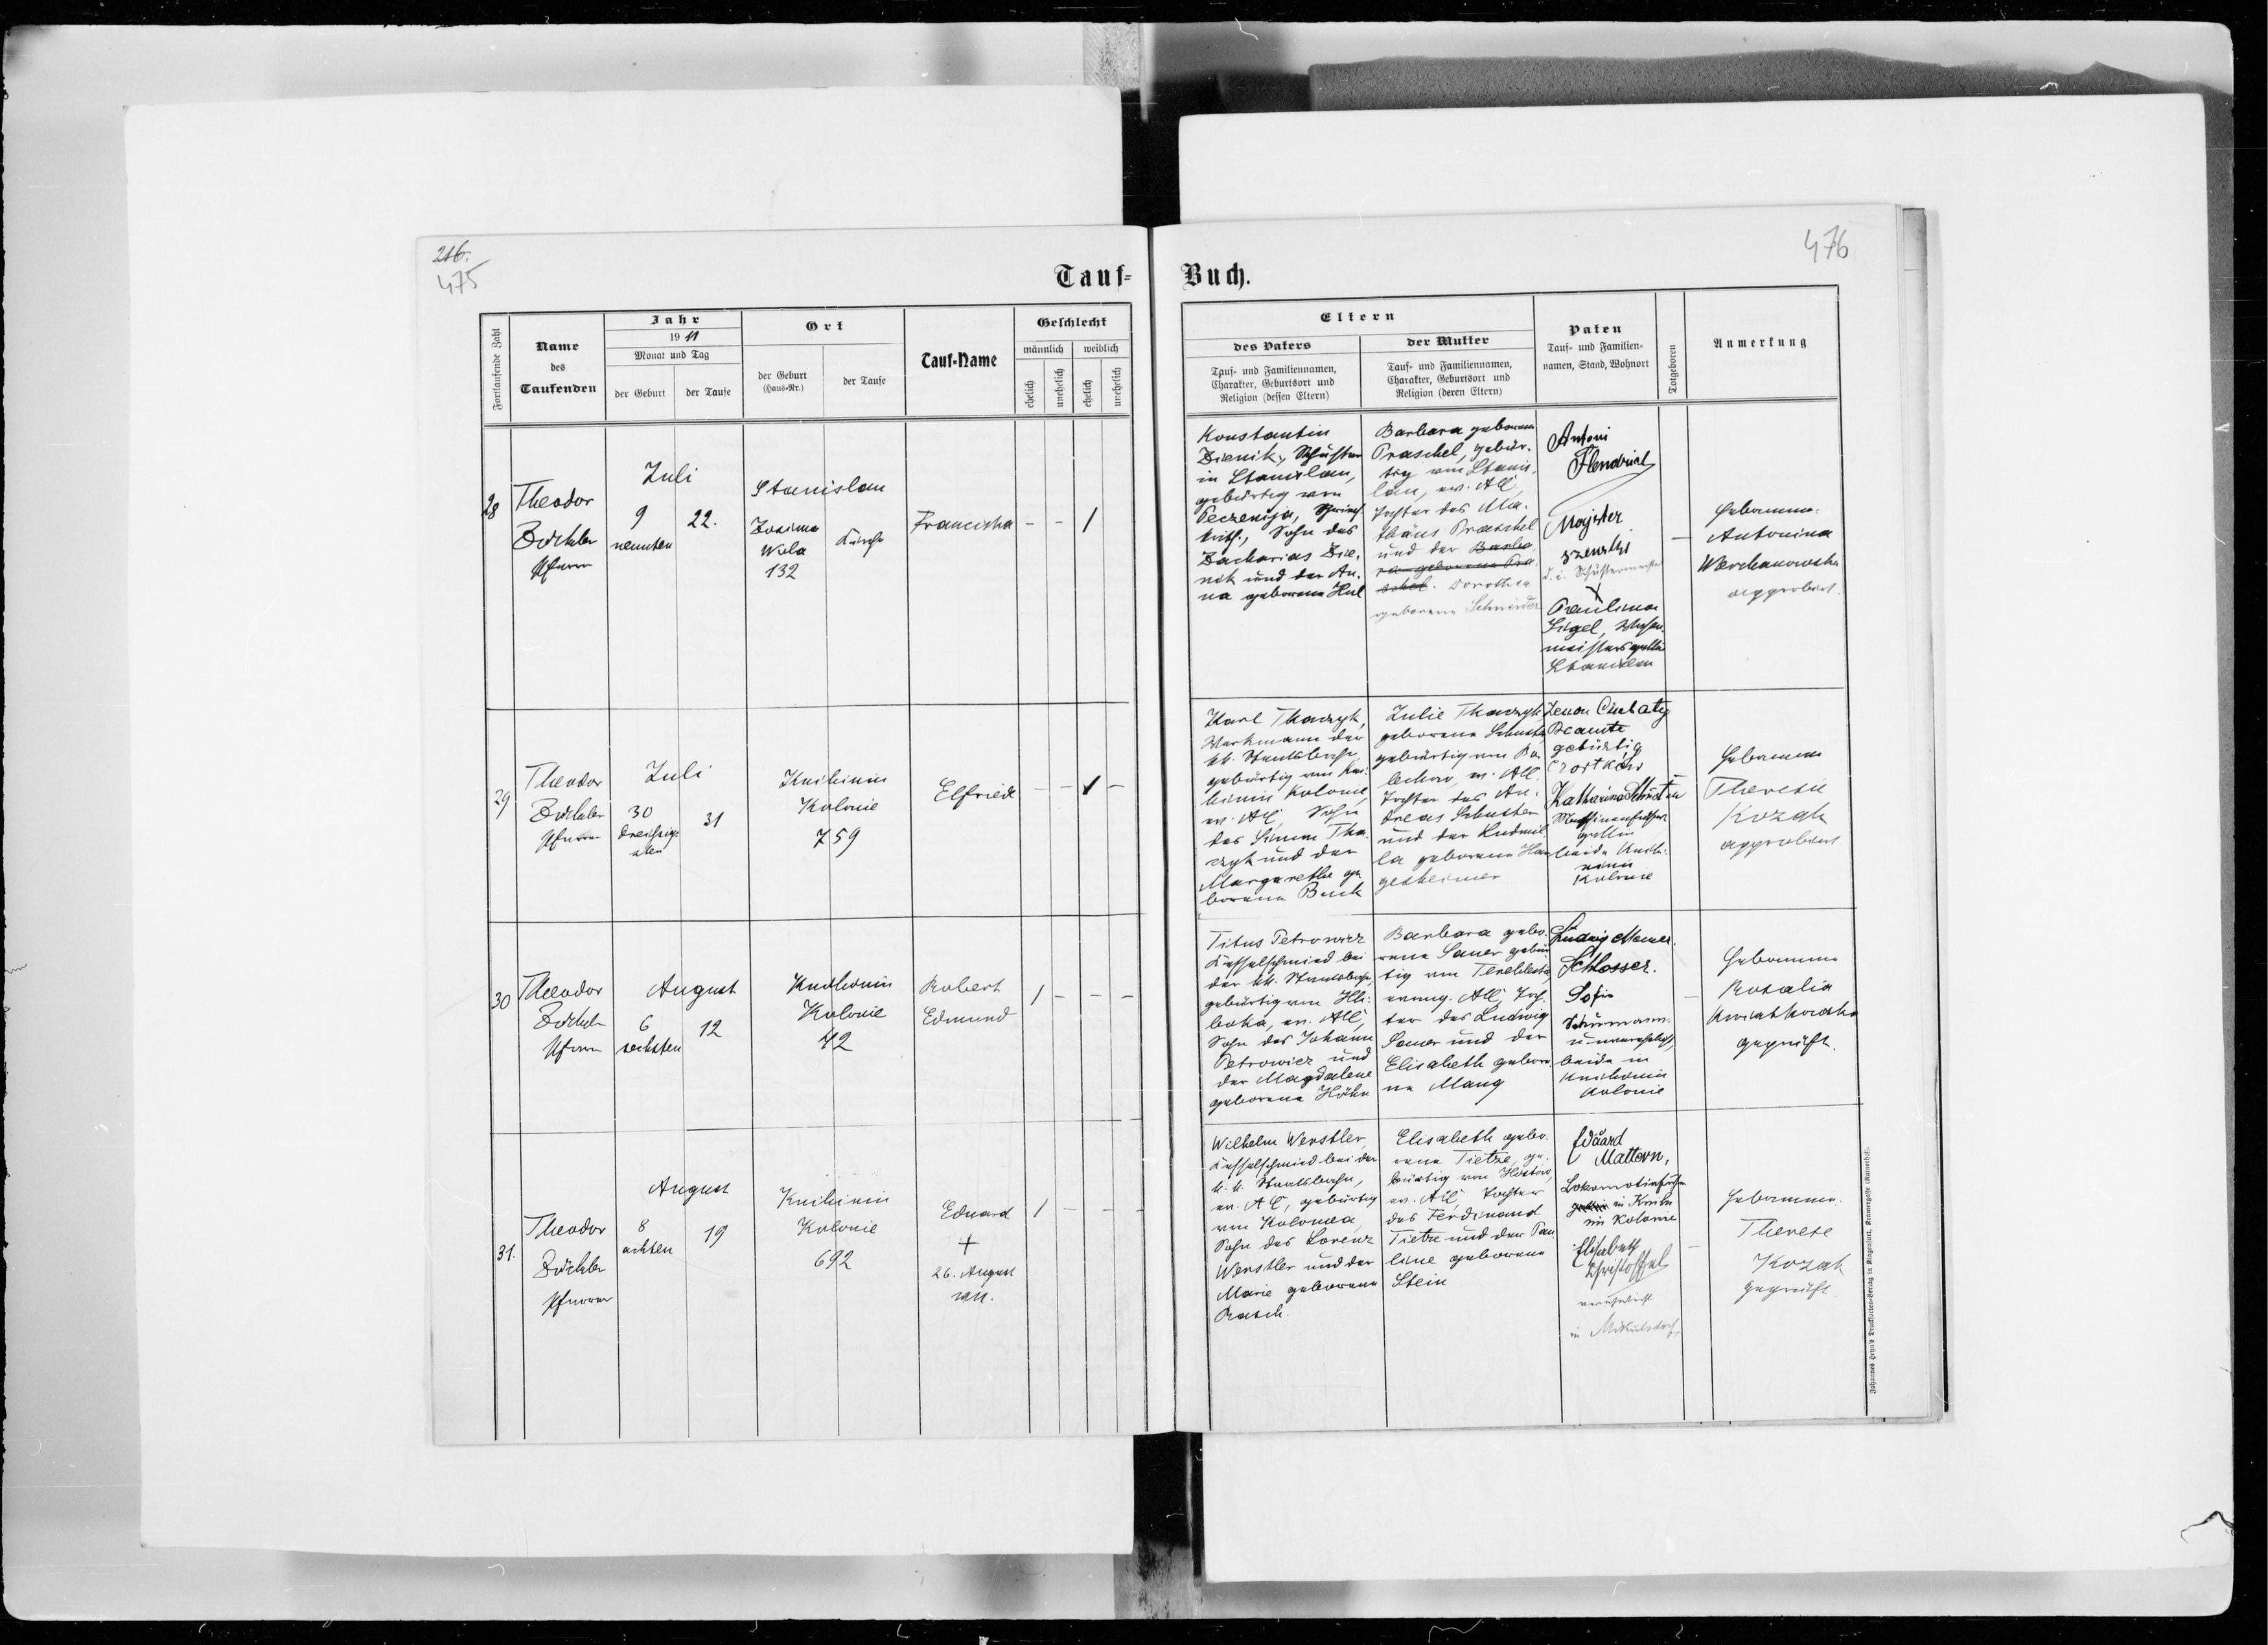 216.
475
476
Tauf-
Buch.
Fortlaufende Zahl
Name
des
Taufenden
Jahr
1911
Monat und Tag
der Geburt
der Taufe
Ort
der Geburt
(Haus-Nr.)
der Taufe
Tauf-Name
Geschlecht
männlich
weiblich
ehelich
unehelich
ehelich
unehelich
Eltern
des Vaters
Tauf- und Familiennamen,
Charakter, Geburtsort und
Religion (dessen Eltern)
der Mutter
Tauf- und Familiennamen,
Charakter, Geburtsort und
Religion (deren Eltern)
Paten
Tauf- und Familien-
namen, Stand, Wohnort
Totgeboren
Anmerkung
28
Theodor
Pfarrer
Juli
9
neunten
22.
Stanislau
Zosina
Wola
132
Kirche
Franciska
- - 1
Konstantin
Dienik, Schuster
in Stanislau,
gebürtig von
Peczeniza,
kath., Sohn des
Zacharias Die-
nik und der An-
na geborene
Barbara geborene
Praschel, gebür-
tig von Stanis-
lau, ev. AC
Tochter des Ma-
thäus Praschel
und der Barba-
ra geborene Pra-
schel. Dorothea
geborene Schneider
Antoni
Majster
szewski
d. i. Schustermeister
Paulina
meistersgattin
Stanislau
-
Hebamme:
Antonina
approbirt.
29
Theodor
Pfarrer
Juli
30
dreissig-
sten
31
Knihinin
Kolonie
759
Elfriede
- - 1 -
Karl Tkaczyk,
Werkmann der
kk. Staatsbahn
gebürtig von Kni-
hinin Kolonie,
ev. AC, Sohn
des Simon Tka-
czyk und der
Margarethe ge-
borene Buck
Julie Tkaczyk
geborene Schuster
gebürtig von Bo-
lechow, ev. AC.
Tochter des An-
dreas Schuster
und der Ludmil-
la geborene Han-
gesheimer
Zenon Chebaty
Beamte
gebürtig
Czortków
Katharina
gattin
beide Knihi-
nin
Kolonie
Hebamme
Therese
Kozak
approbirt
30
Theodor
Pfarrer
August
6
sechsten
12
Knihinin
Kolonie
42
Robert
Edmund
1 - - -
Titus Petrowicz
Kesselschmied bei
der kk. Staatsbahn,
gebürtig von Hli-
boka, ev. AC,
Sohn des Johann
Petrowicz und
der Magdalene
geborene Höhn
Barbara gebo-
rene Sauer gebür-
tig von
evang. AC, Toch-
ter des Ludwig
Sauer und der
Elisabeth gebore-
ne Mang
Ludwig
Schlosser.
Sofie
Schürmann
unverehelicht,
beide in
Knihinin
Kolonie
-
Hebamme
Rosalia
Kwiatkowska
geprüft.
31.
Theodor
Pfarrer
August
8
achten
19
Knihinin
Kolonie
692
Eduard
+
26. August
1911.
1 - - -
Wilhelm Werstler
Kesselschmied bei der
k. k. Staatsbahn,
ev. AC, gebürtig
von Kolomea,
Sohn des Lorenz
Werstler und der
Marie geborene
Rasch.
Elisabeth gebo-
rene Tietze, ge-
bürtig von
ev. AC, Tochter
des Ferdinand
Tietze und der Pau-
line geborene
Stein
Eduard
Mattern,
Lokomotivführer
in Knihi-
nin Kolonie
Elisabeth
Christoffel
verehelicht
in Mikulsdorf
-
Hebamme.
Therese
Kozak
geprüft.
Johannes Heyn's Drucksorten-Verlag in Klagenfurt, Kramergasse (Kramerhof).